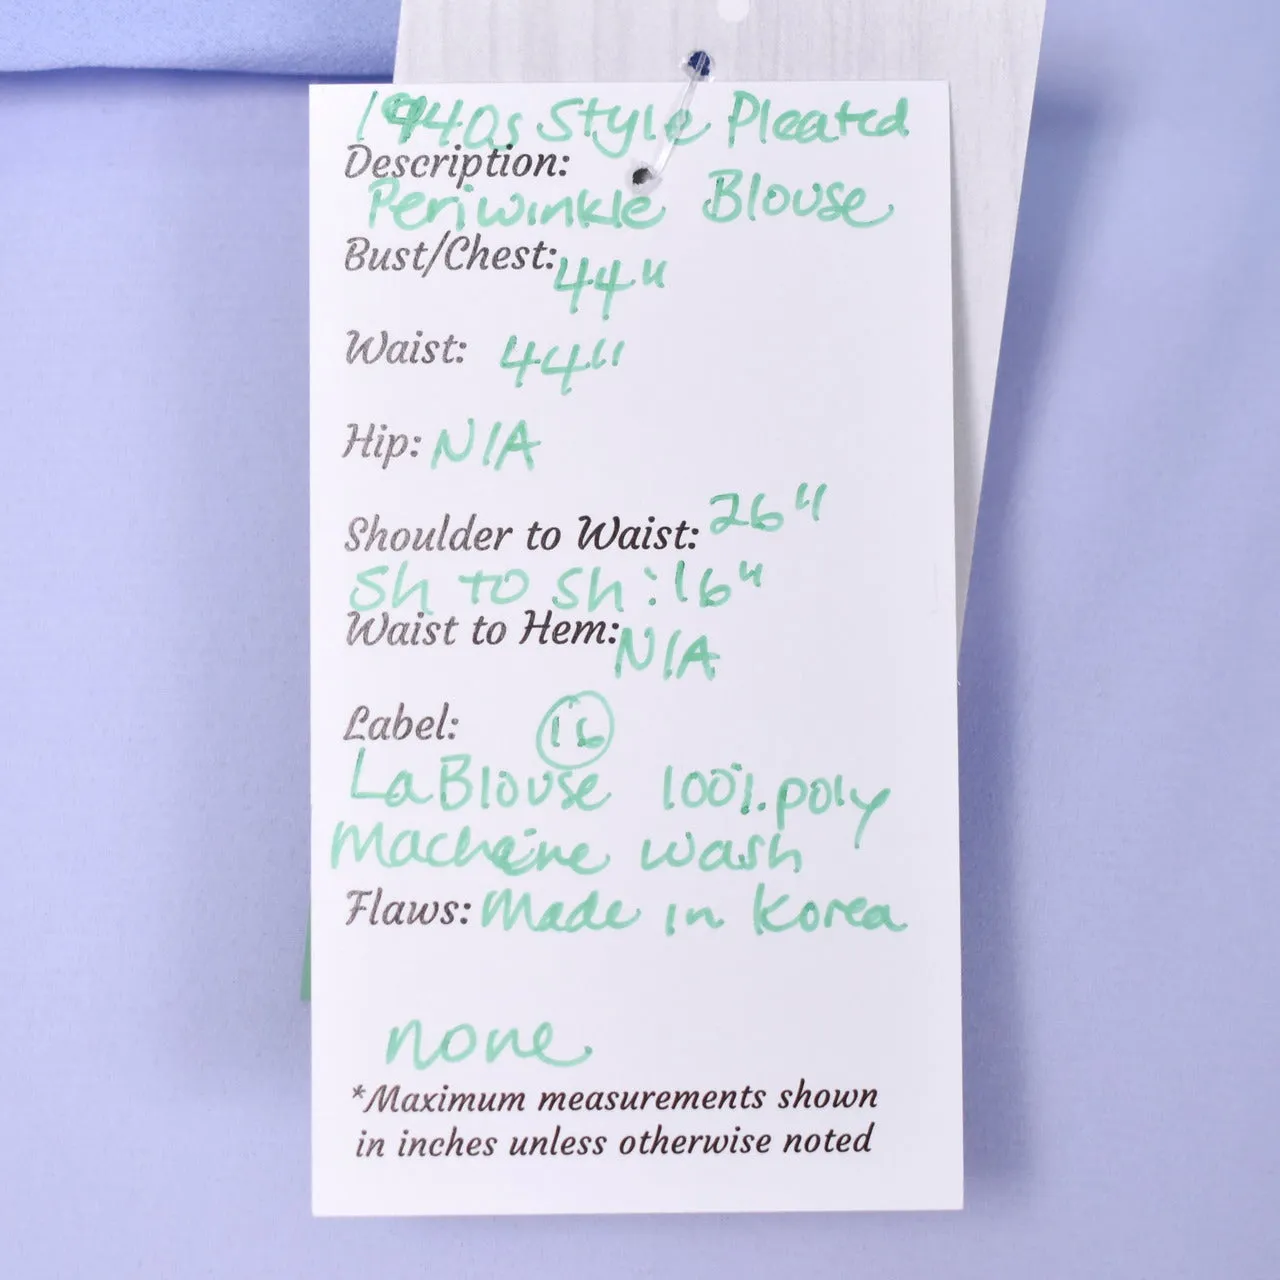 1940s Style Pleated
Description:
Periwinkle Blouse
Bust/Chest: 44"
Waist: 44"
Hip: N/A
Shoulder to Waist: 26"
Sh to Sh: 16"
Waist to Hem: N/A
Label: 16
LaBlouse 100% poly
Machine wash
Flaws: Made in Korea
none
*Maximum measurements shown
in inches unless otherwise noted